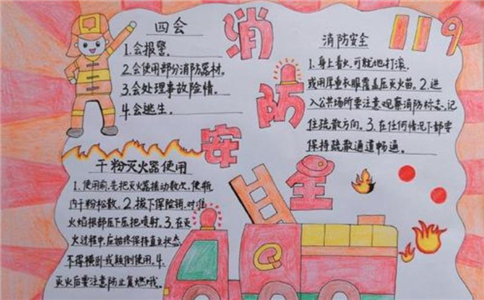 消防安全
119
四会
1.会报警.
2.会使用部分消防器材.
3.会处理事故险情.
4.会逃生.
消防安全
1.身上着火,可就地打滚,
或用厚重衣服覆盖压灭火苗。2.进
入公共场所要注意观察消防标志,记
住疏散方向。3.在任何情况下都要
保持疏散通道畅通。
干粉灭火器使用
1.使用前,先把灭火器摇动数次,使瓶
内干粉松散。2.拔下保险销,对准
火焰根部压下压把喷射。3.在灭
火过程中应始终保持直立状态,
不得横卧或颠倒使用。4.
灭火后要注意防止复燃哦.